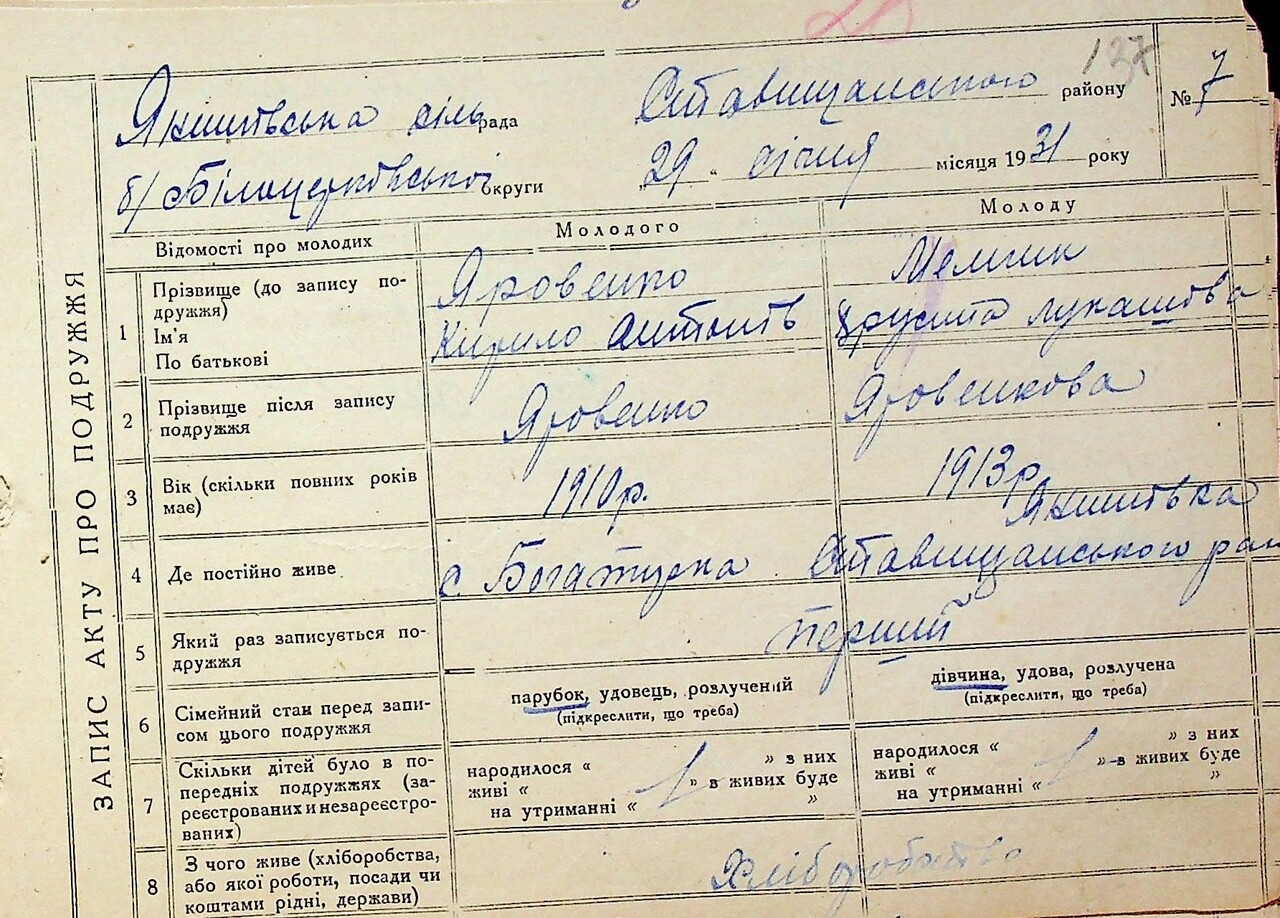 137
Якимівська сіль рада Ставищанського району № 7
б/ Білоцерковської округи „29" січня місяця 1931 року
ЗАПИС АКТУ ПРО ПОДРУЖЖЯ
Відомості про молодих Молодого Молоду
1 Прізвище (до запису по-
дружжя)
Ім'я
По батькові
Яровенко
Кирило Антонів
Мельник
Хрусина Лукашова
2 Прізвище після запису
подружжя
Яровенко
Яровенкова
3 Вік (скільки повних років
має)
1910 р.
1913 р.
4 Де постійно живе
с. Богатирка
Ставищанського рай
5 Який раз записується по-
дружжя
перший
6 Сімейний стан перед запи-
сом цього подружжя
парубок, удовець, розлучений
(підкреслити, що треба)
дівчина, удова, розлучена
(підкреслити, що треба)
7 Скільки дітей було в по-
передніх подружжях (за-
реєстрованих и незареєстро-
ваних)
народилося “ ” з них
живі “ ” в живих буде
на утриманні “ ”
народилося “ ” з них
живі “ ” в живих буде
на утриманні “ ”
8 З чого живе (хліборобства,
або якої роботи, посади чи
коштами рідні, держави)
Хліборобство